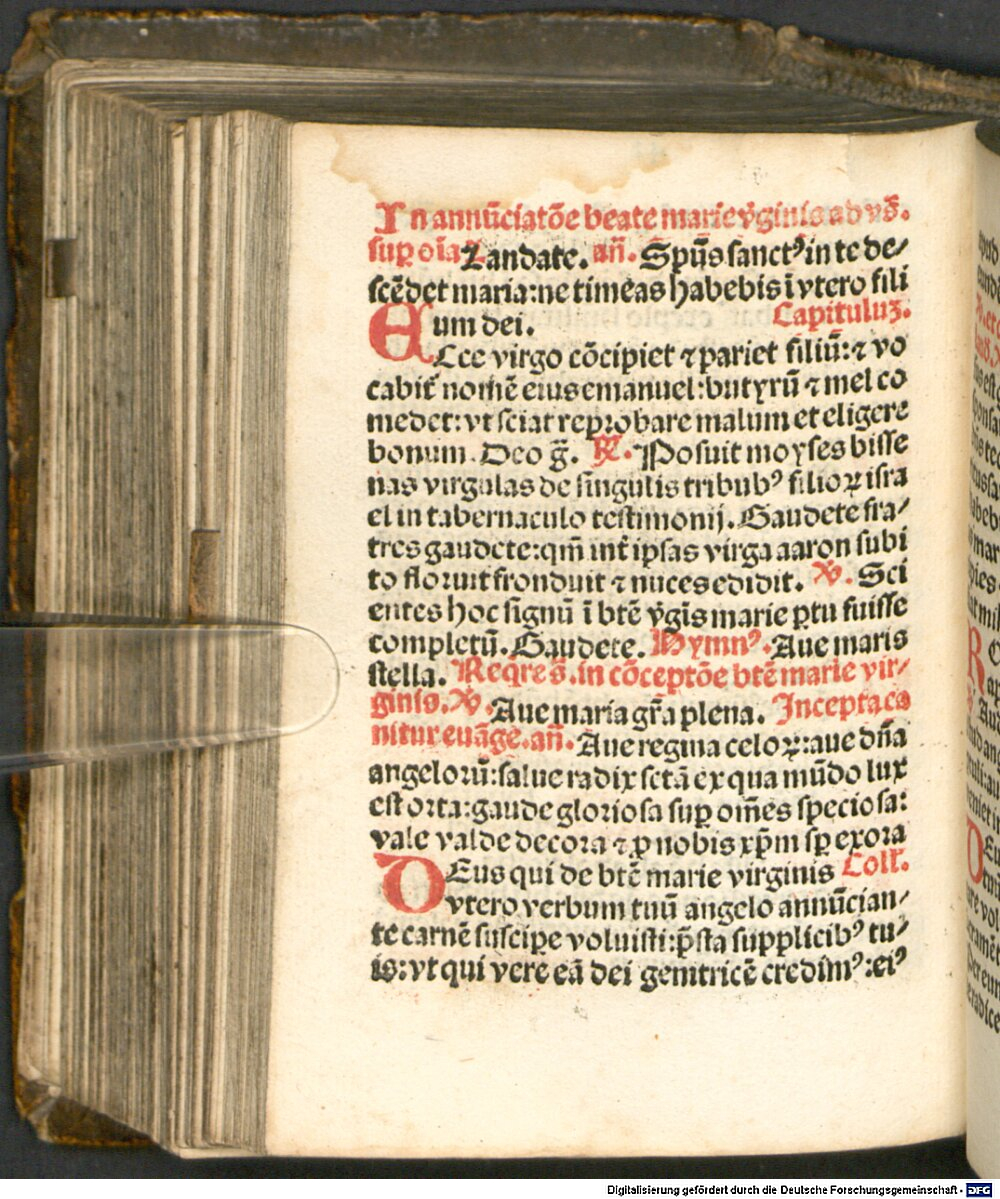 In annūciatōe beate marie v̄ginis ad vs̄.
sup oīa Laudate. an̄. Spūs sanctꝰ in te de⸗
scēdet maria: ne timeas habebis ī vtero fili
um dei. Capituluʒ.
ECce virgo cōcipiet ⁊ pariet filiū: ⁊ vo
cabit̄ nomē eius emanuel: butyrū ⁊ mel co
medet: vt sciat reprobare malum et eligere
bonum. Deo ḡ. ℟. Posuit moyses bisse
nas virgulas de singulis tribubꝰ filioꝝ isra
el in tabernaculo testimonij. Gaudete fra⸗
tres gaudete: qm̄ int̄ ipsas virga aaron subi
to floruit fronduit ⁊ nuces edidit. ℣. Sci
entes hoc signū ī btē v̄gis marie ꝑtu fuisse
completū. Gaudete. Hymnꝰ. Aue maris
stella. Reqres̄. in cōceptōe btē marie vir⸗
ginis. ℣. Aue maria gr̄a plena. Incepta ca
nitur euāge. an̄. Aue regina celoꝝ: aue dn̄a
angelorū: salue radix sctā ex qua mūdo lux
est orta: gaude gloriosa sup om̄es speciosa:
vale valde decora ⁊ ꝓ nobis xp̄m sꝑ exora
DEus qui de btē marie virginis Coll̄.
vtero verbum tuū angelo annūcian⸗
te carnē suscipe voluisti: p̄sta supplicibꝰ tu⸗
is: vt qui vere eā dei genitricē credimꝰ: eiꝰ
Digitalisierung gefördert durch die Deutsche Forschungsgemeinschaft - DFG